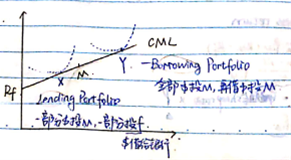 CML
Y
-Borrowing Portfolio
全部投M,再借cash投M
M
X
Rf
Lending Portfolio
-部分投M,-部分投f.